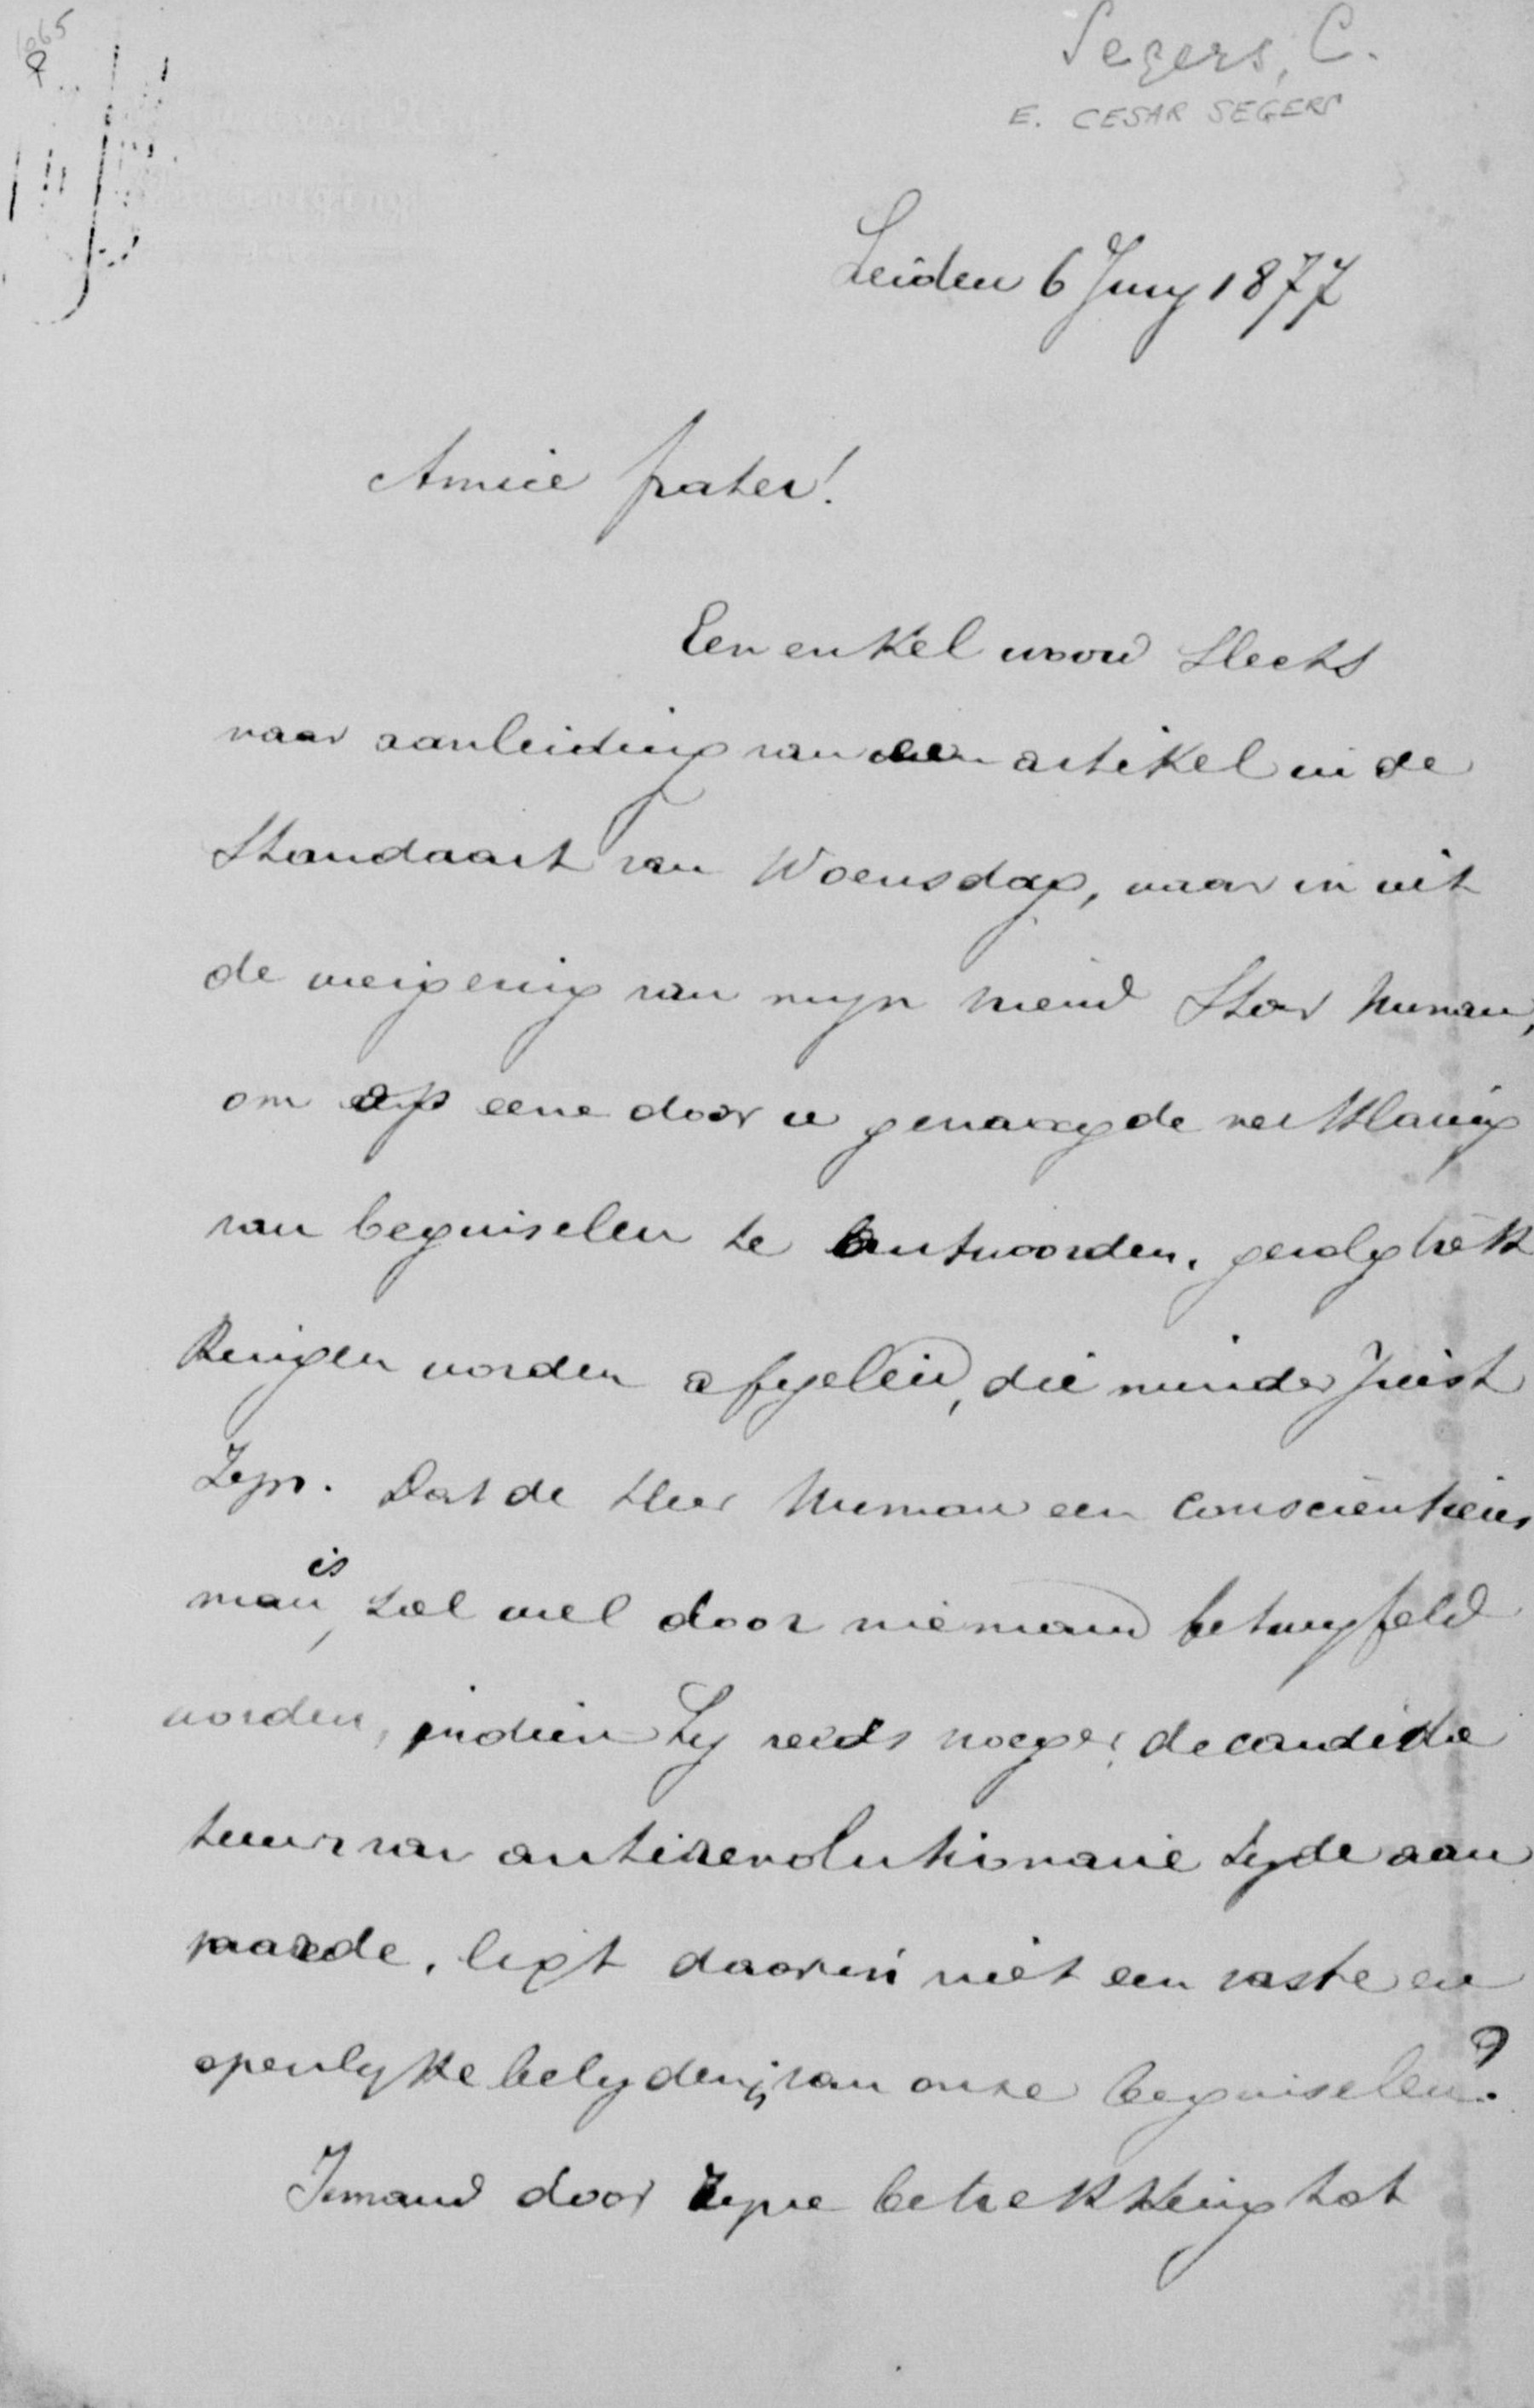 1065
Segers, C.
E. CESAR SEGERS
Leiden 6 Juny 1877
Amice frater!
Een enkel woord slechts
naar aanleiding van een artikel in de
Standaart van Woensdag, waar in uit
de weigering van myn vriend Star Numan,
om op eene door u gevraagde verklaring
van beginselen te antwoorden, gevolgtrek
kingen worden afgeleid, die minder juist
zyn. Dat de Heer Numan een conscientieus
man is, zal wel door niemand betwyfeld
worden, indien hy reeds vroeger de candida
tuur van antirevolutionaire zyde aan
vaarde, ligt daarin niet een vaste en
openlyke belydenis van onze beginselen?
Iemand door zyne betrekking tot